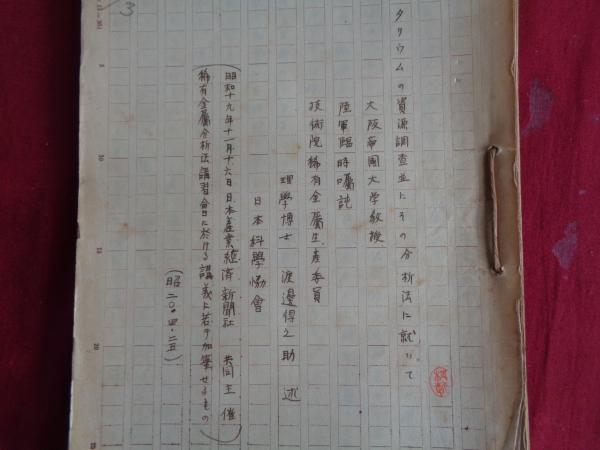 タリウムの資源調査並にその分析法に就いて
大阪帝國大学教授
陸軍臨時囑託
技術院稀有金属生産委員
理學博士 渡邊得之助 述
日本科學協會
(昭和十九年十一月十六日日本産業経済新聞社 共同主催
稀有金属分析法講習會に於ける講義に若干加筆せるもの)
(昭二〇・四・二五)
3
5
10
15
20
25